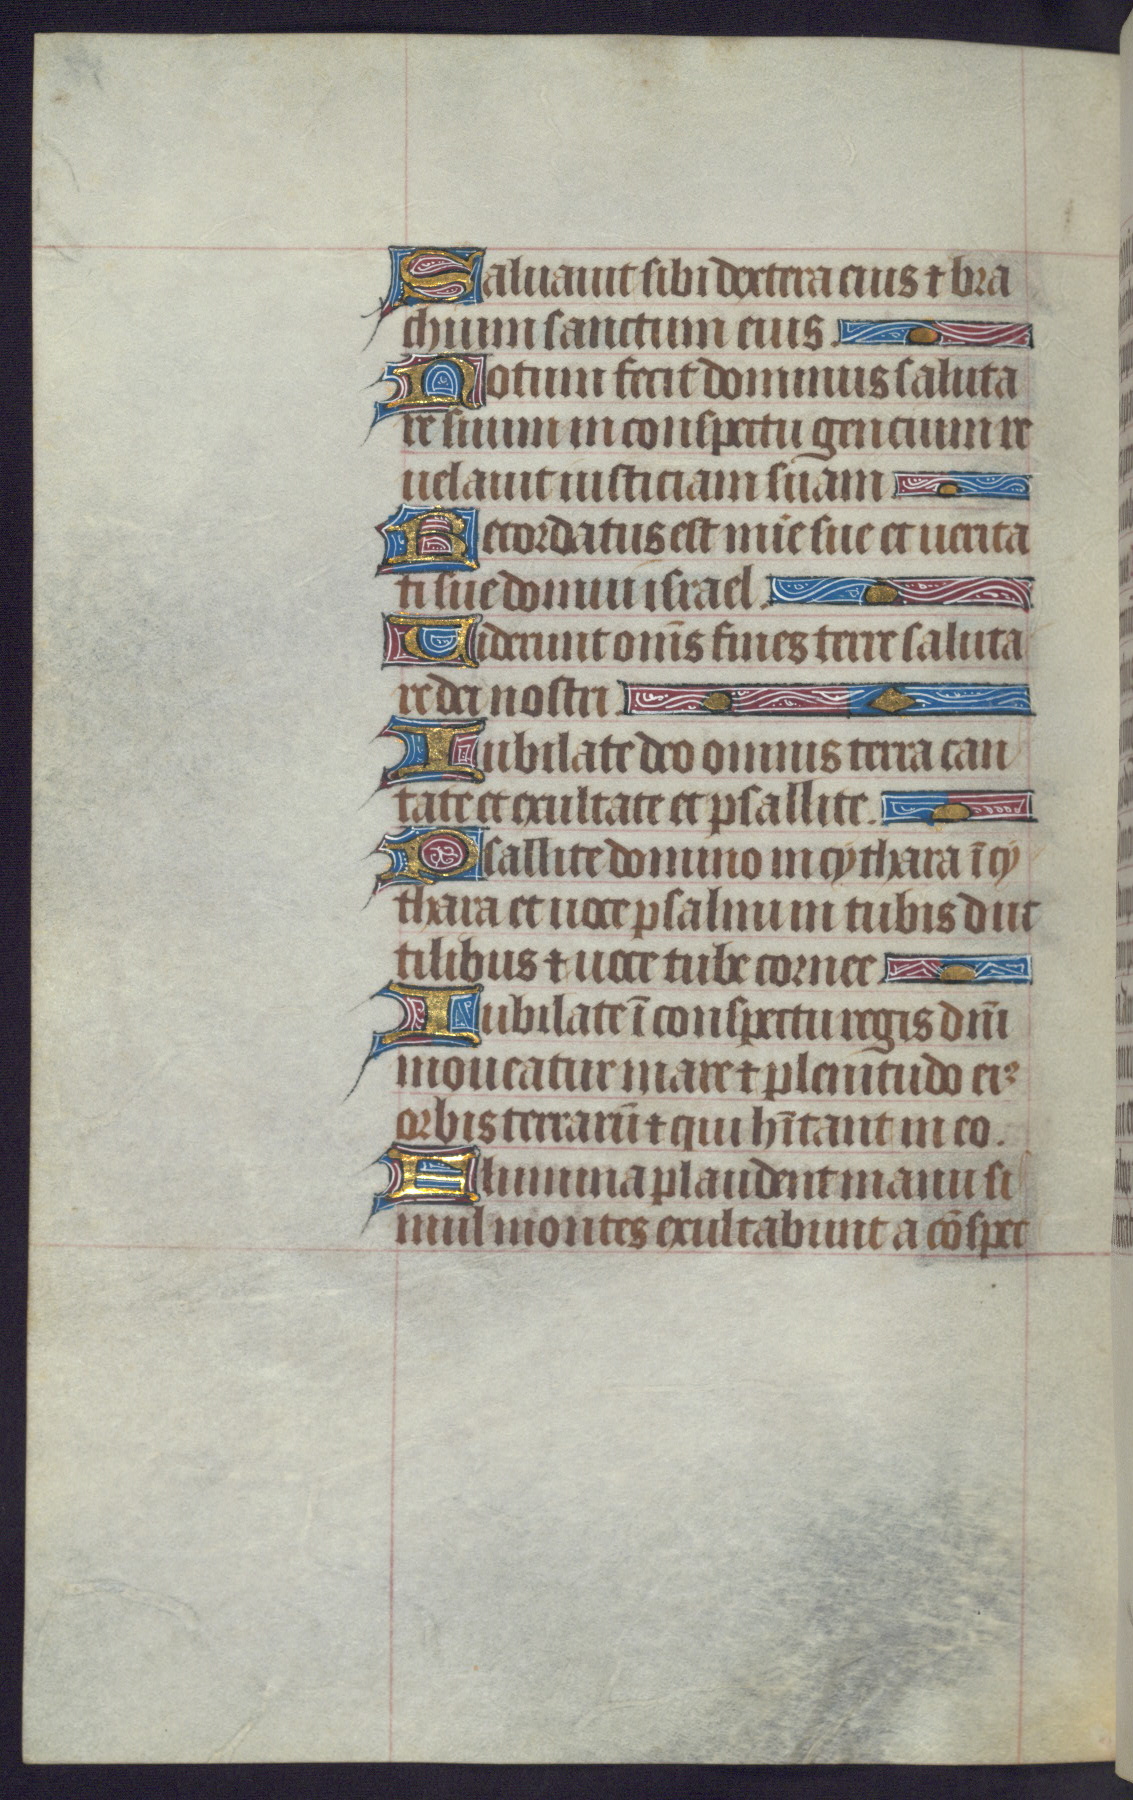 Saluauit sibi dextera eius ⁊ bra
chium sanctum eius.
Notum fecit dominus saluta
re suum in conspectu gencium re
uelauit iusticiam suam
Recordatus est mīe sue et uerita
ti sue domui israel.
Uiderunt om̄s fines terre saluta
re dei nostri
Iubilate deo omnis terra can
tate et exultate et psallite.
Psallite domino in cythara ī cy
thara et uoce psalmi in tubis duc
tilibus ⁊ uoce tube cornee
Iubilate ī conspectu regis dm̄i
moueatur mare ⁊ plenitudo eiꝰ
orbis terrarū ⁊ qui hītant in eo.
Flumina plaudent manu si
mul montes exultabunt a cōspec